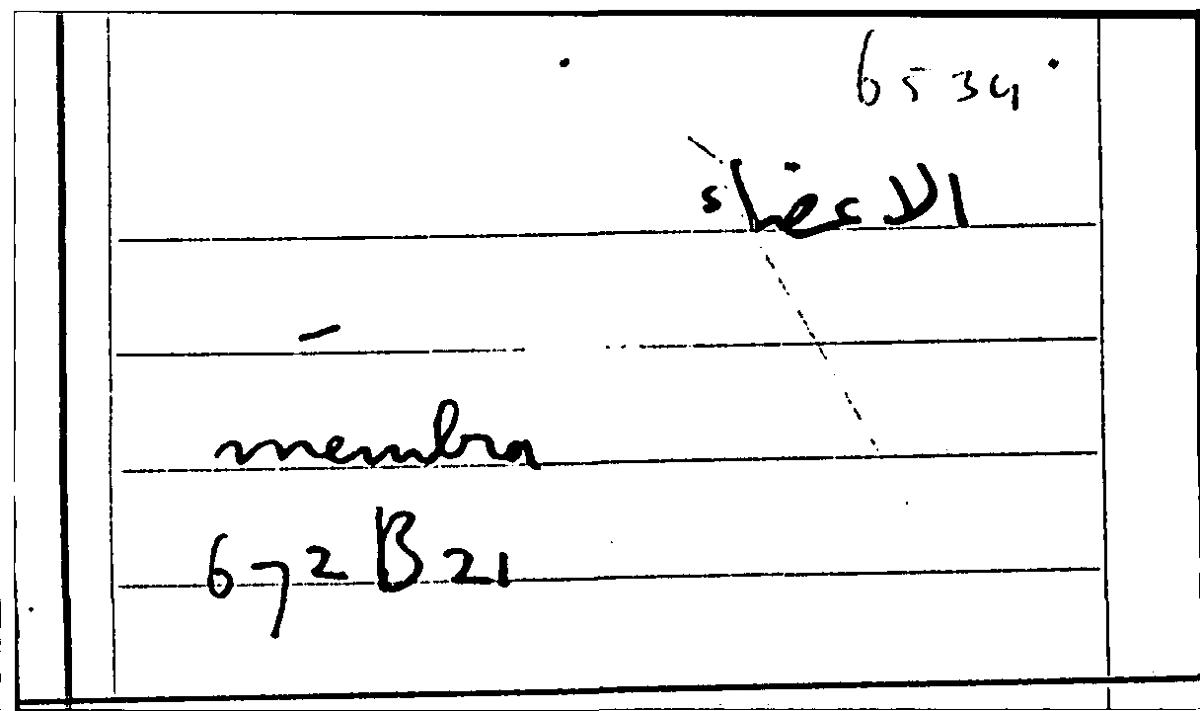 6534
الاعضاء
membra
672 B 21